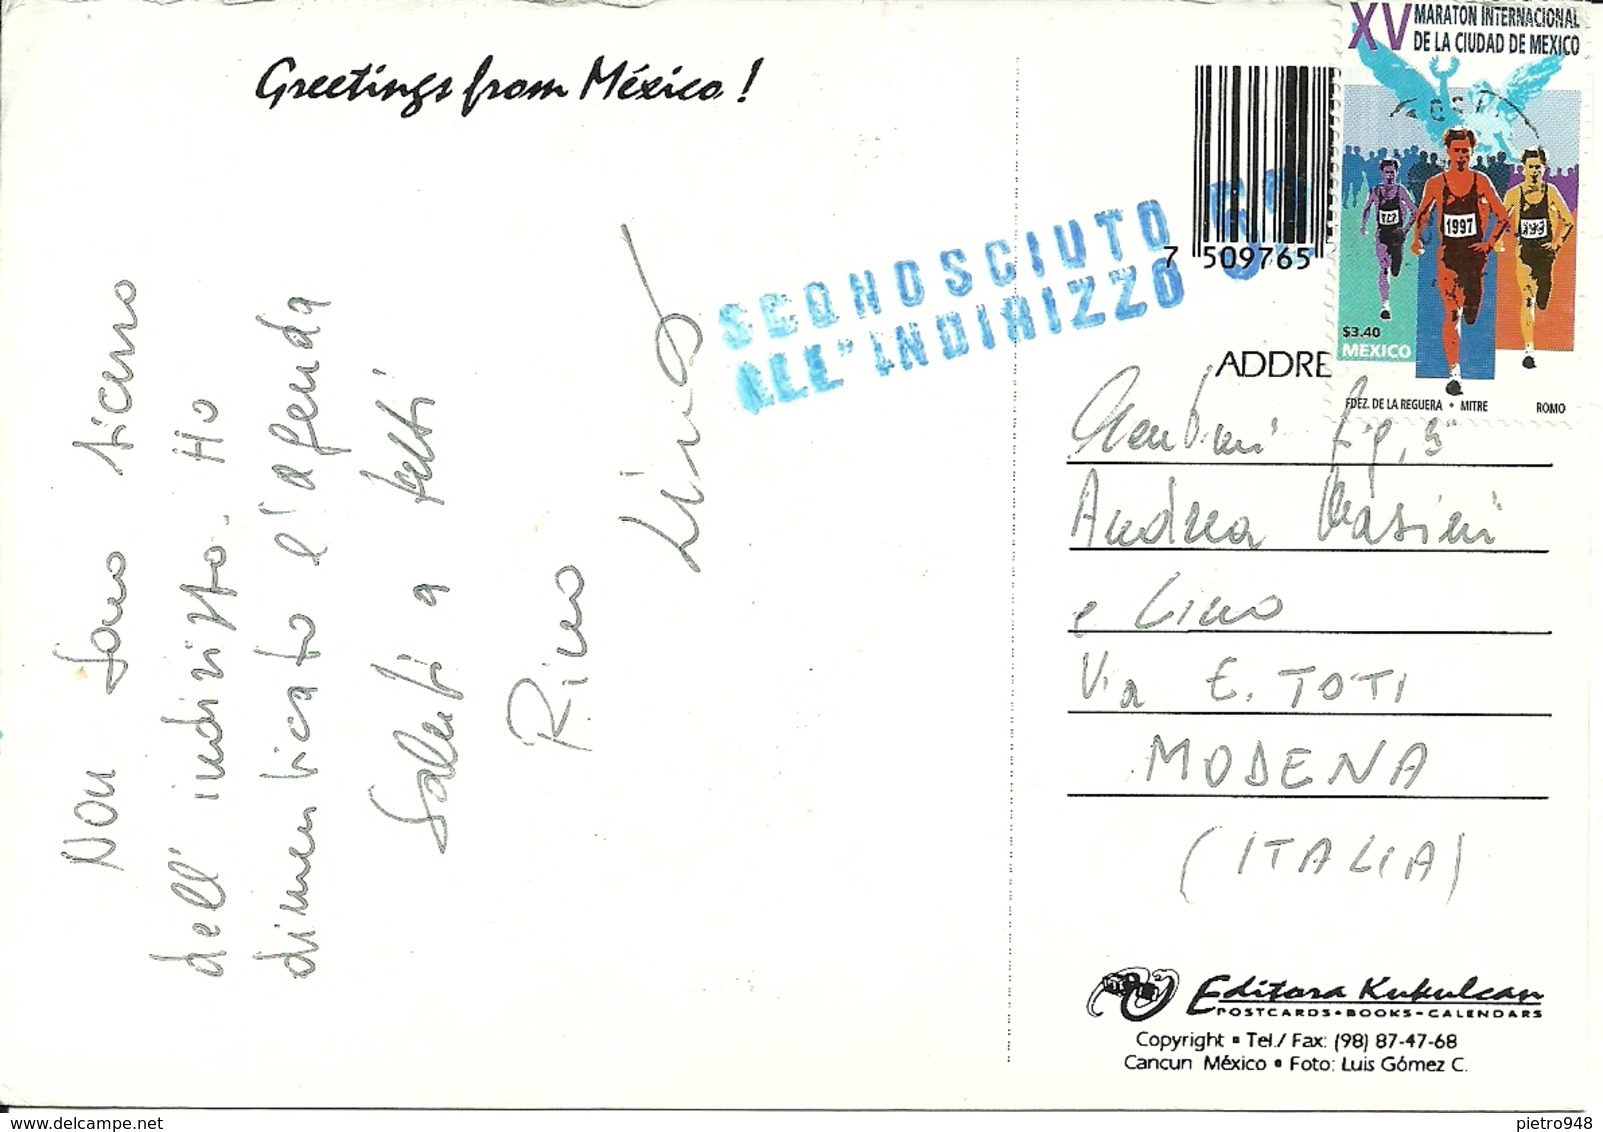 Greetings from México !
Non sono sicuro
dell'indirizzo. Ho
dimenticato l'agenda
Saluti a tutti
Rino
Lino
SCONOSCIUTO
ALL'INDIRIZZO
7 509765
XV MARATON INTERNACIONAL
DE LA CIUDAD DE MEXICO
1997
$3.40
MEXICO
FDEZ. DE LA REGUERA • MITRE ROMO
ADDRE
Andrea Masini
e Lino
Via E. TOTI
MODENA
(ITALIA)
Editora Kukulcan
POSTCARDS•BOOKS•CALENDARS
Copyright ▪ Tel./ Fax: (98) 87-47-68
Cancun México ▪ Foto: Luis Gómez C.
pietro948